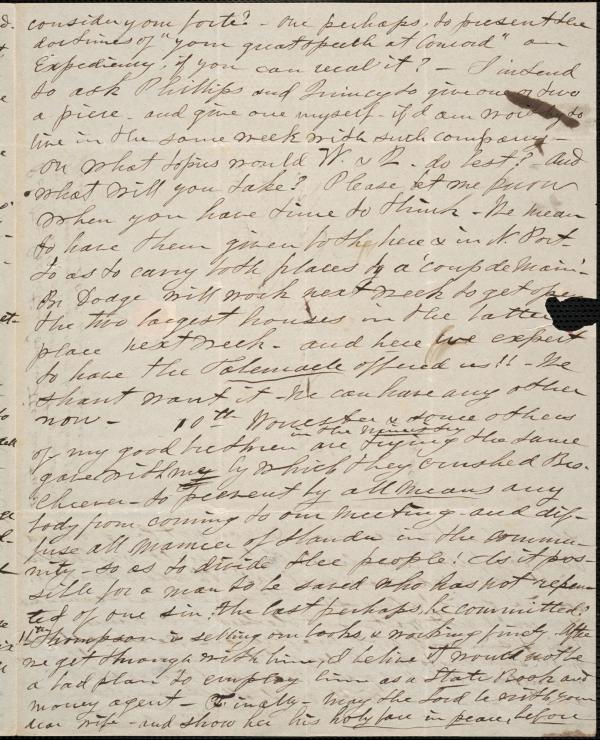 consider your forte? - One perhaps, to present the
doctrines of "your great speech at Concord" on
Expediency, if you can recal it? - I intend
to ask Phillips and Quincy to give one or two
a piece - and give one myself - if I am worthy to
live in the same week with such company -
On what topics would W. & P. do best? And
what will you take? Please let me know
when you have time to think - We mean
to have them given both here & in N. Port-
so as to carry both places by a 'coup de Main'-
Br Dodge will work next week to get open
the two largest houses in the latter
place next week - and here we expect
to have the Tabernacle offered us!! - We
shant want it - We can have any other
now - 10th Worcester & some others
of my good brethren in the ministry are trying the same
game with me by which they crushed Bro.
Cheever - to prevent by all means any
body from coming to our meeting - and dif-
fuse all manner of slander in the commu-
nity - so as to divide the people! Is it pos-
sible for a man to be saved who has not repen-
ted of one sin, the last perhaps, he committed?
11th Thompson is selling our books, & working finely. After
we get through with him, I believe it would not be
a bad plan to employ him as a State Book and
money agent - Finally - may the Lord be with your
dear wife - and show her his holy face in peace, before